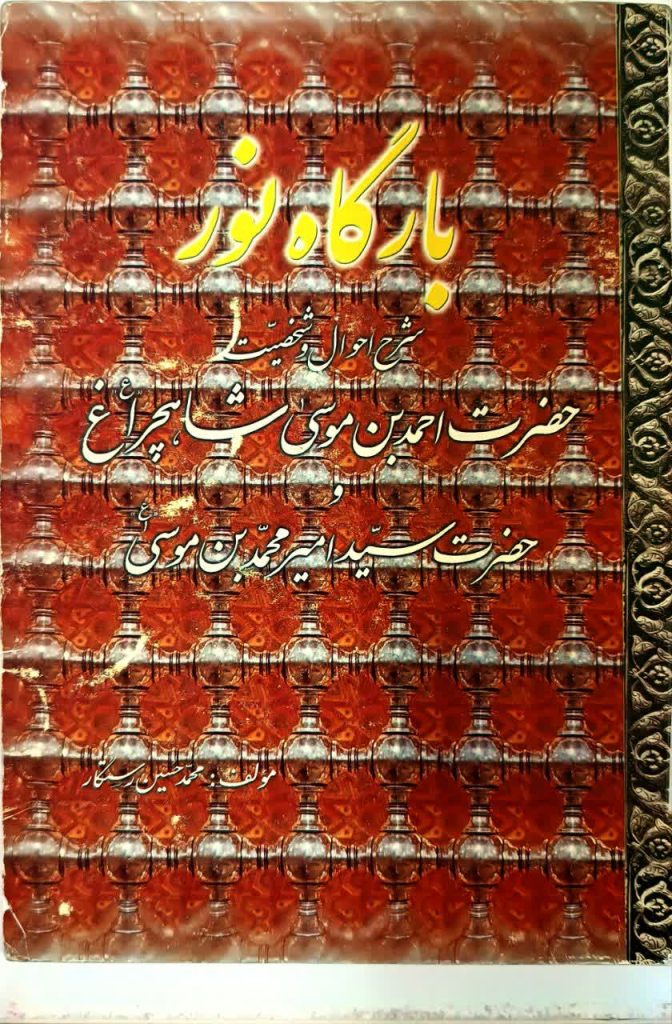 بارگاه نور
شرح احوال و شخصیّت
حضرت احمد بن موسیٰ شاهچراغ ع
و
حضرت سیّد امیر محمّد بن موسیٰ ع
مؤلف: محمّد حسین رستگار